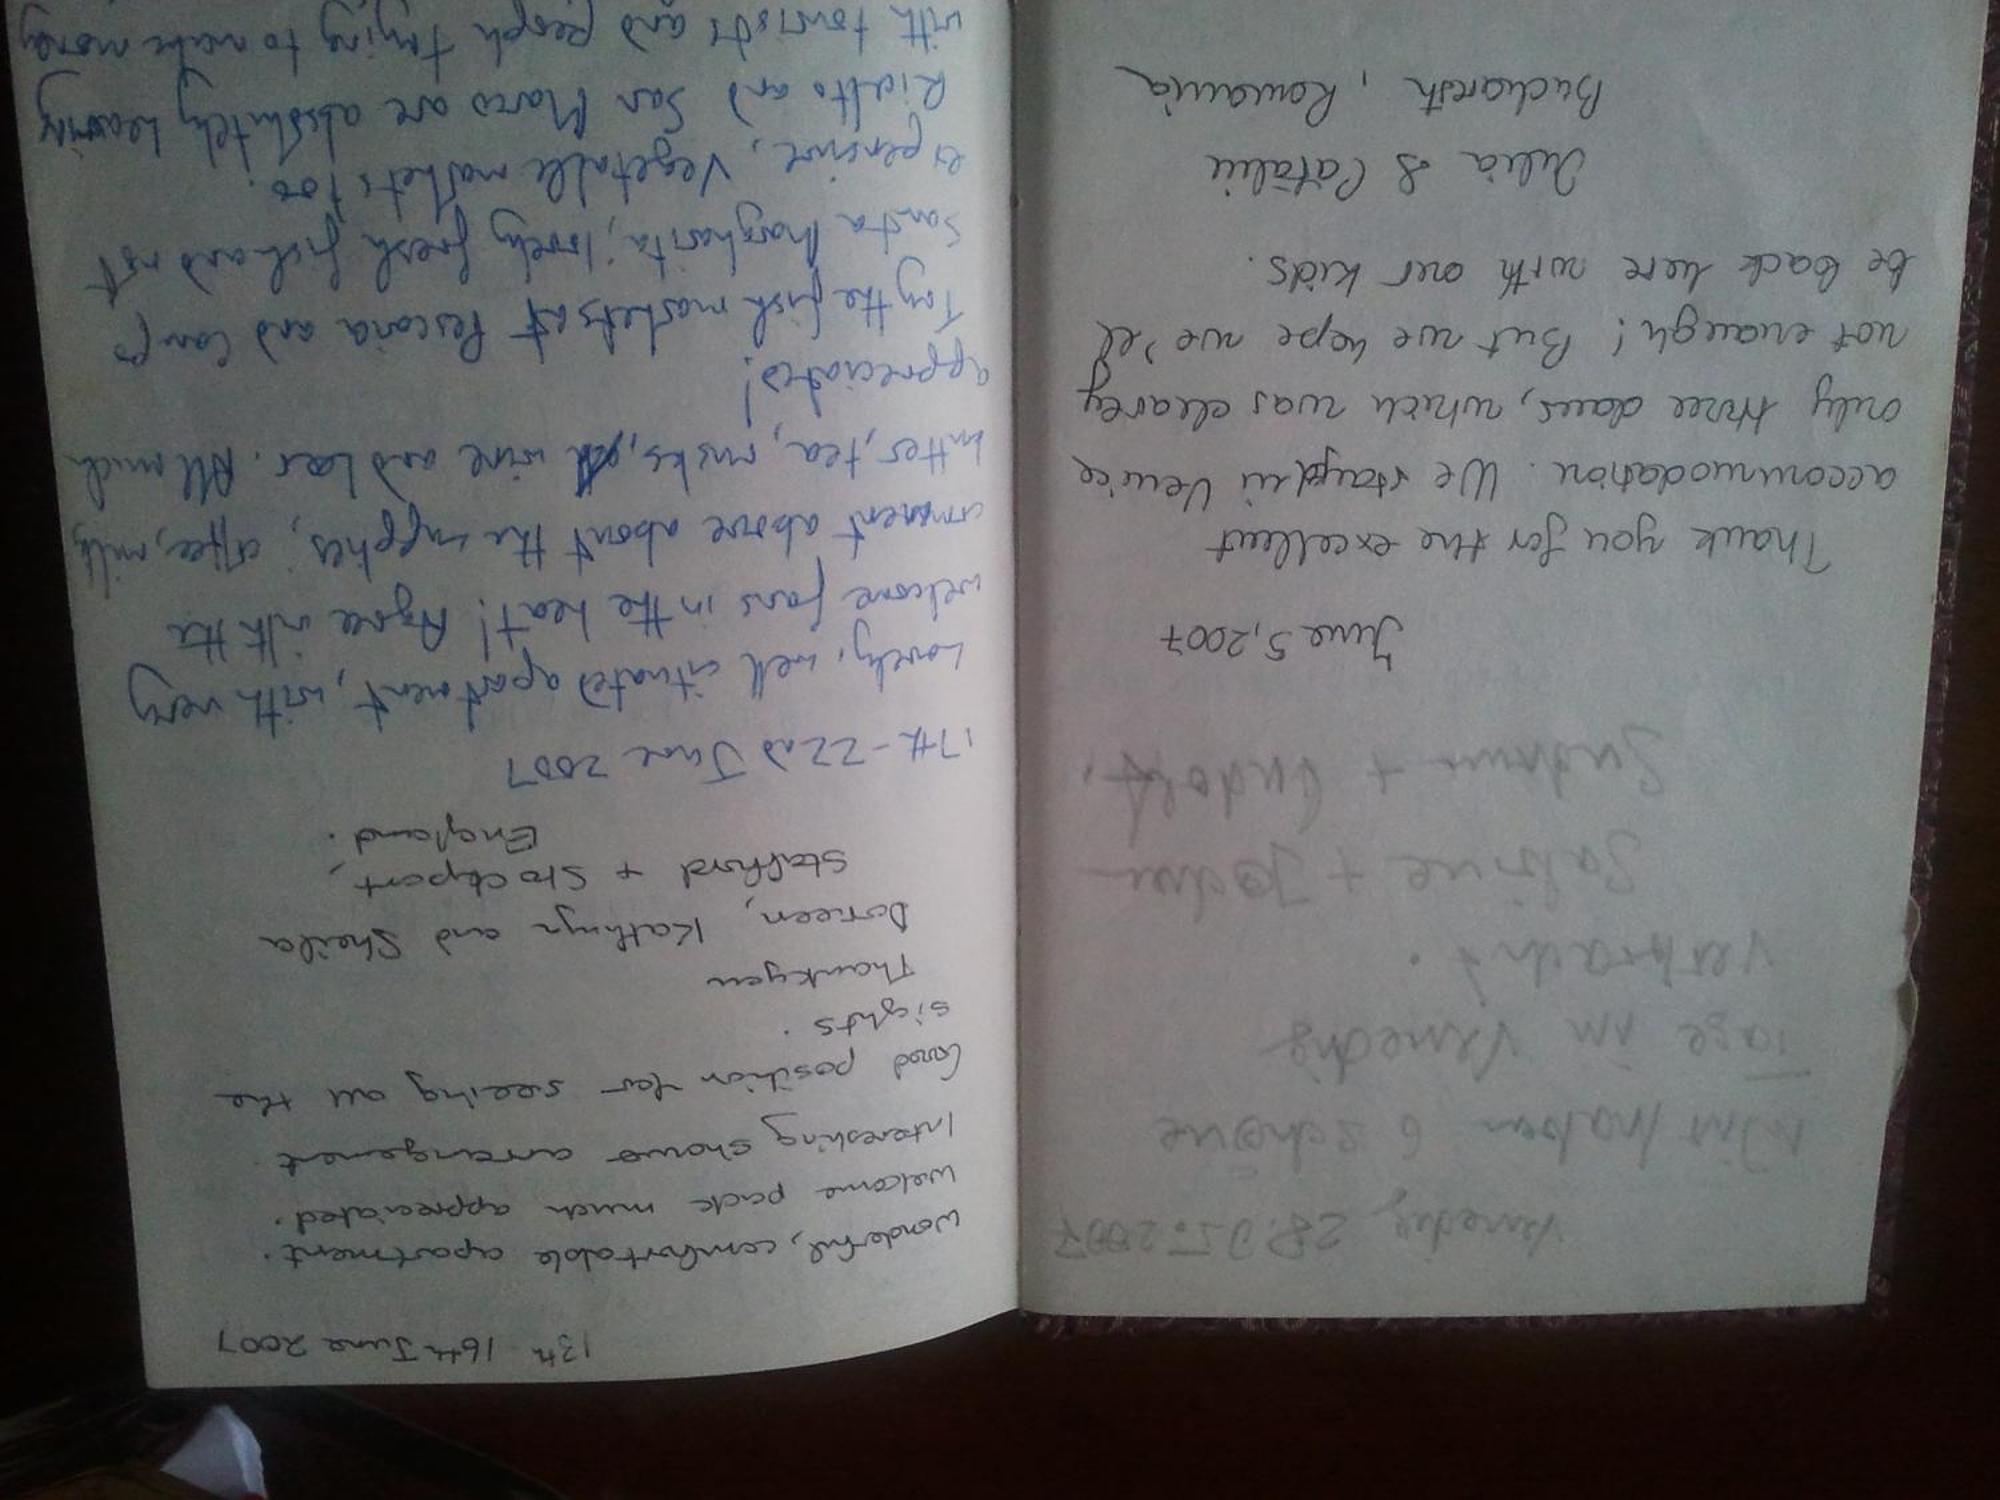 Venedig, 28.05.2007
Wir haben 6 schöne
Tage in Venedig
verbracht.
Sabine + Jochen
Gudrun + Rudolf.
June 5, 2007
Thank you for the excellent
accommodation. We stayed in Venice
only three daus, which was clearey
not enaugh! But we hope we'll
be back here with our kids.
Iulia & Cătălin
Bucharest, Romania
13th 16th June 2007
Wonderful, comfortable apartment.
Welcome pack much appreciated.
Interesting shower arrangement.
Good position for seeing all the
sights.
Thankyou
Doreen, Kathryn and Sheila
Stafford + Stockport,
England.
17th - 22nd June 2007
Lovely, well situated apartment, with very
welcome fans in the heat! Agree with the
comment above about the supplies; coffee, milk,
butter, tea, rusks, wine and beer. All much
appreciated!
Try the fish markets at Pescaria and Campo
Santa Margharita; lovely fresh fish and not
expensive, vegetable markets too.
Rialto and San Marco are absolutely heaving
with tourists and people trying to make money